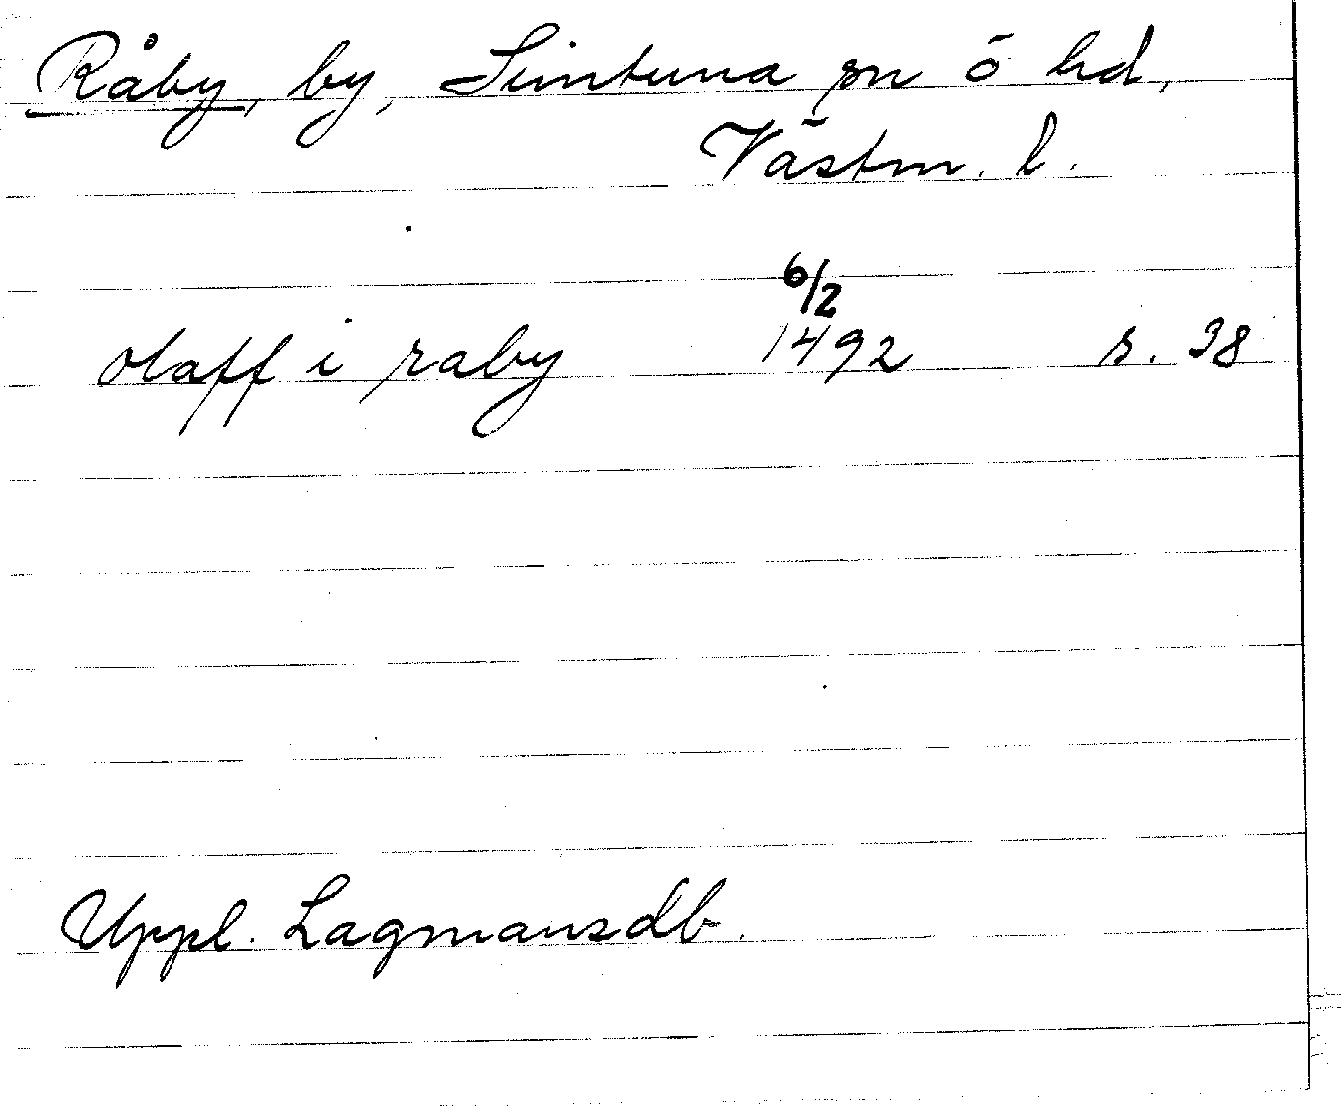 Råby, by, Simtuna sn o hd,
Västm. l.
6/2
olaff i raby 1492 s. 38
Uppl. Lagmansdb.